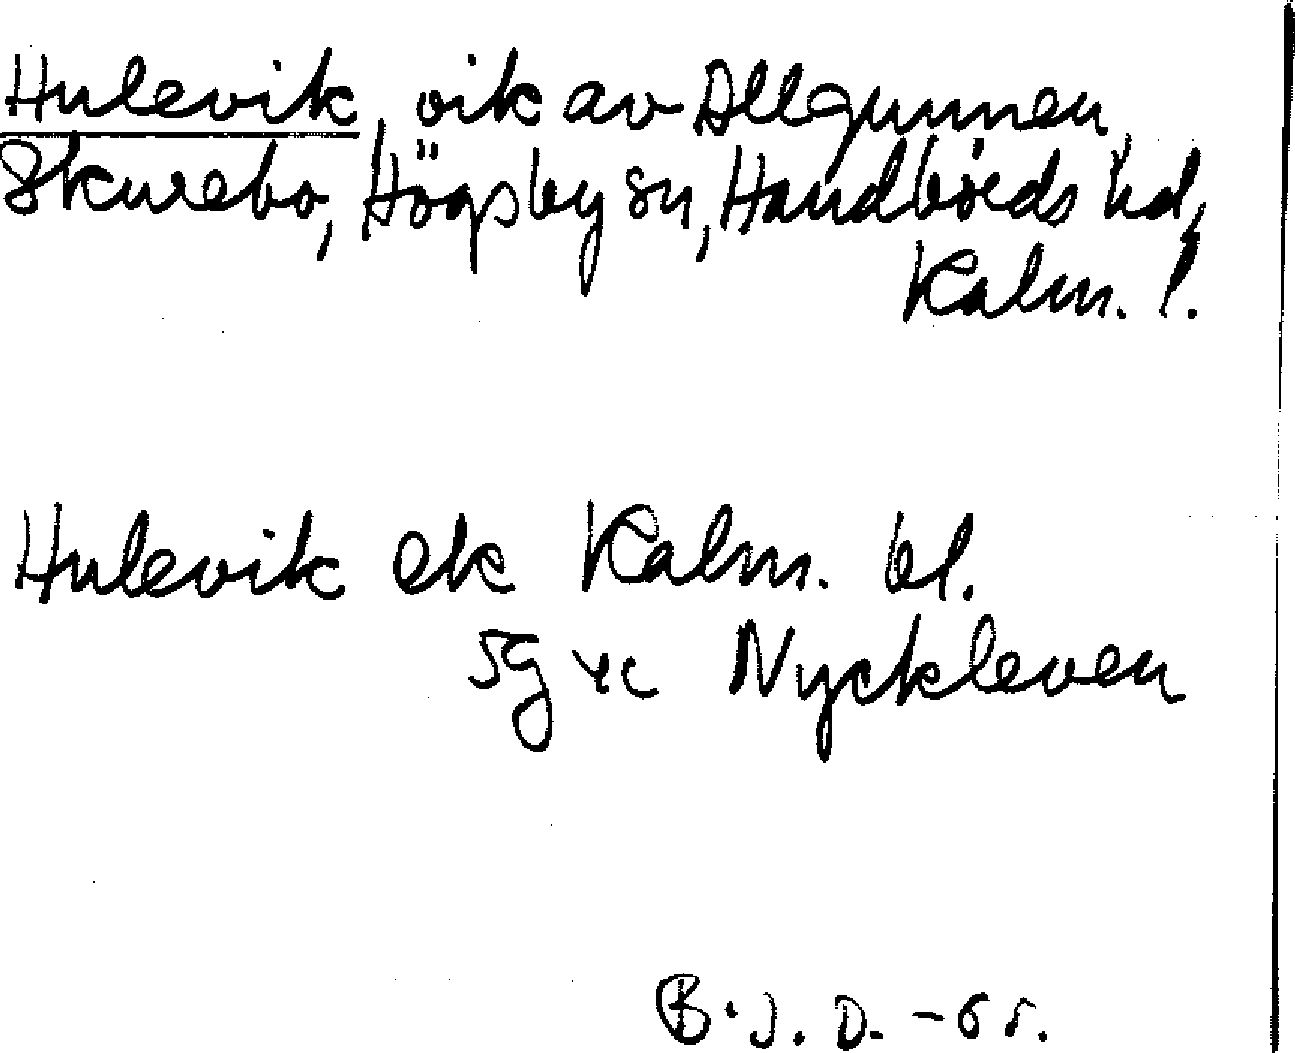 Hulevik, vik av Allgunnen,
Skurebo, Högsby sn, Handbörds hd,
Kalm. l.
Hulevik ek Kalm. bl.
5g Nyckleven
B.J.D. -65.